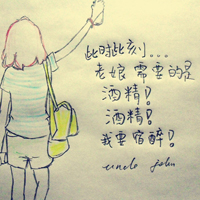 此时此刻...
老娘需要的是
酒精!
酒精!
我要宿醉!
uncle john